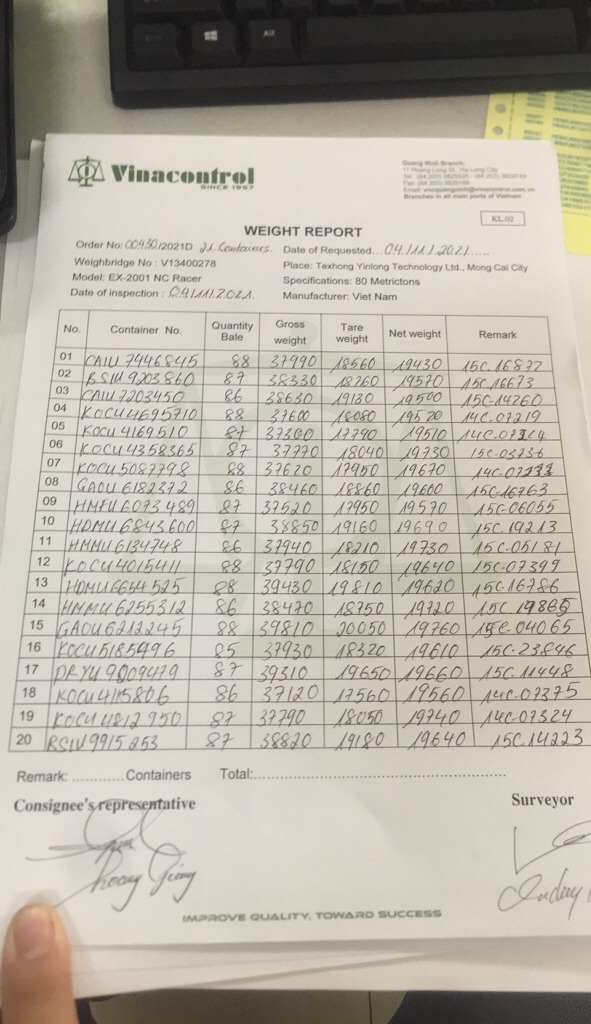 Alt
Vinacontrol
SINCE 1957
Quang Ninh Branch:
Branches in all main ports of Vietnam
KL.02
WEIGHT REPORT
Order No: 00450/2021D 21 Containes. Date of Requested...04/11/2021......
Weighbridge No : V13400278 Place: Texhong Yinlong Technology Ltd., Mong Cai City
Model: EX-2001 NC Racer Specifications: 80 Metrictons
Date of inspection : 04/11/2021. Manufacturer: Viet Nam
No. Container No. Quantity Bale Gross weight Tare weight Net weight Remark
01 CAIU 7446845 88 37990 18560 19430 15C.16872
02 BSIU 9203860 87 38330 18760 19570 15C.16673
03 CAIU 7203450 86 38630 19130 19500 15C-14260
04 KOCU 4695710 88 37600 18080 19520 14C.07219
05 KOCU 4169510 87 37300 17790 19510
06 KOCU 4358365 87 37770 18040 19730 15C-03736
07 KOCU 5087798 88 37620 17950 19670
08 GAOU 6182372 86 38460 18860 19600 15C-16763
09 HMFU 6073489 87 37520 17950 19570 15C-06055
10 HDMU 6843600 87 38850 19160 19690 15C.19213
11 HMMU 6134748 86 37940 18210 19730 15C.05181
12 KOCU 4015411 88 37790 18150 19640 15C-07399
13 HDMU 6654525 88 39430 19810 19620 15C-16786
14 HMMU 6255312 86 38470 18750 19720
15 GAOU 6212245 88 39810 20050 19760 15C-04065
16 KOCU 5185496 85 37930 18320 19610 15C-23846
17 DRYU 9009479 87 39310 19650 19660 15C.11448
18 KOCU 4115806 86 37120 17560 19560 14C-07375
19 KOCU 4812950 87 37790 18050 19740 14C-07324
20 BSIU 9915253 87 38820 19180 19640 15C.14223
Remark: ............Containers Total:............
Consignee's representative Surveyor
Hoang Giang
IMPROVE QUALITY, TOWARD SUCCESS